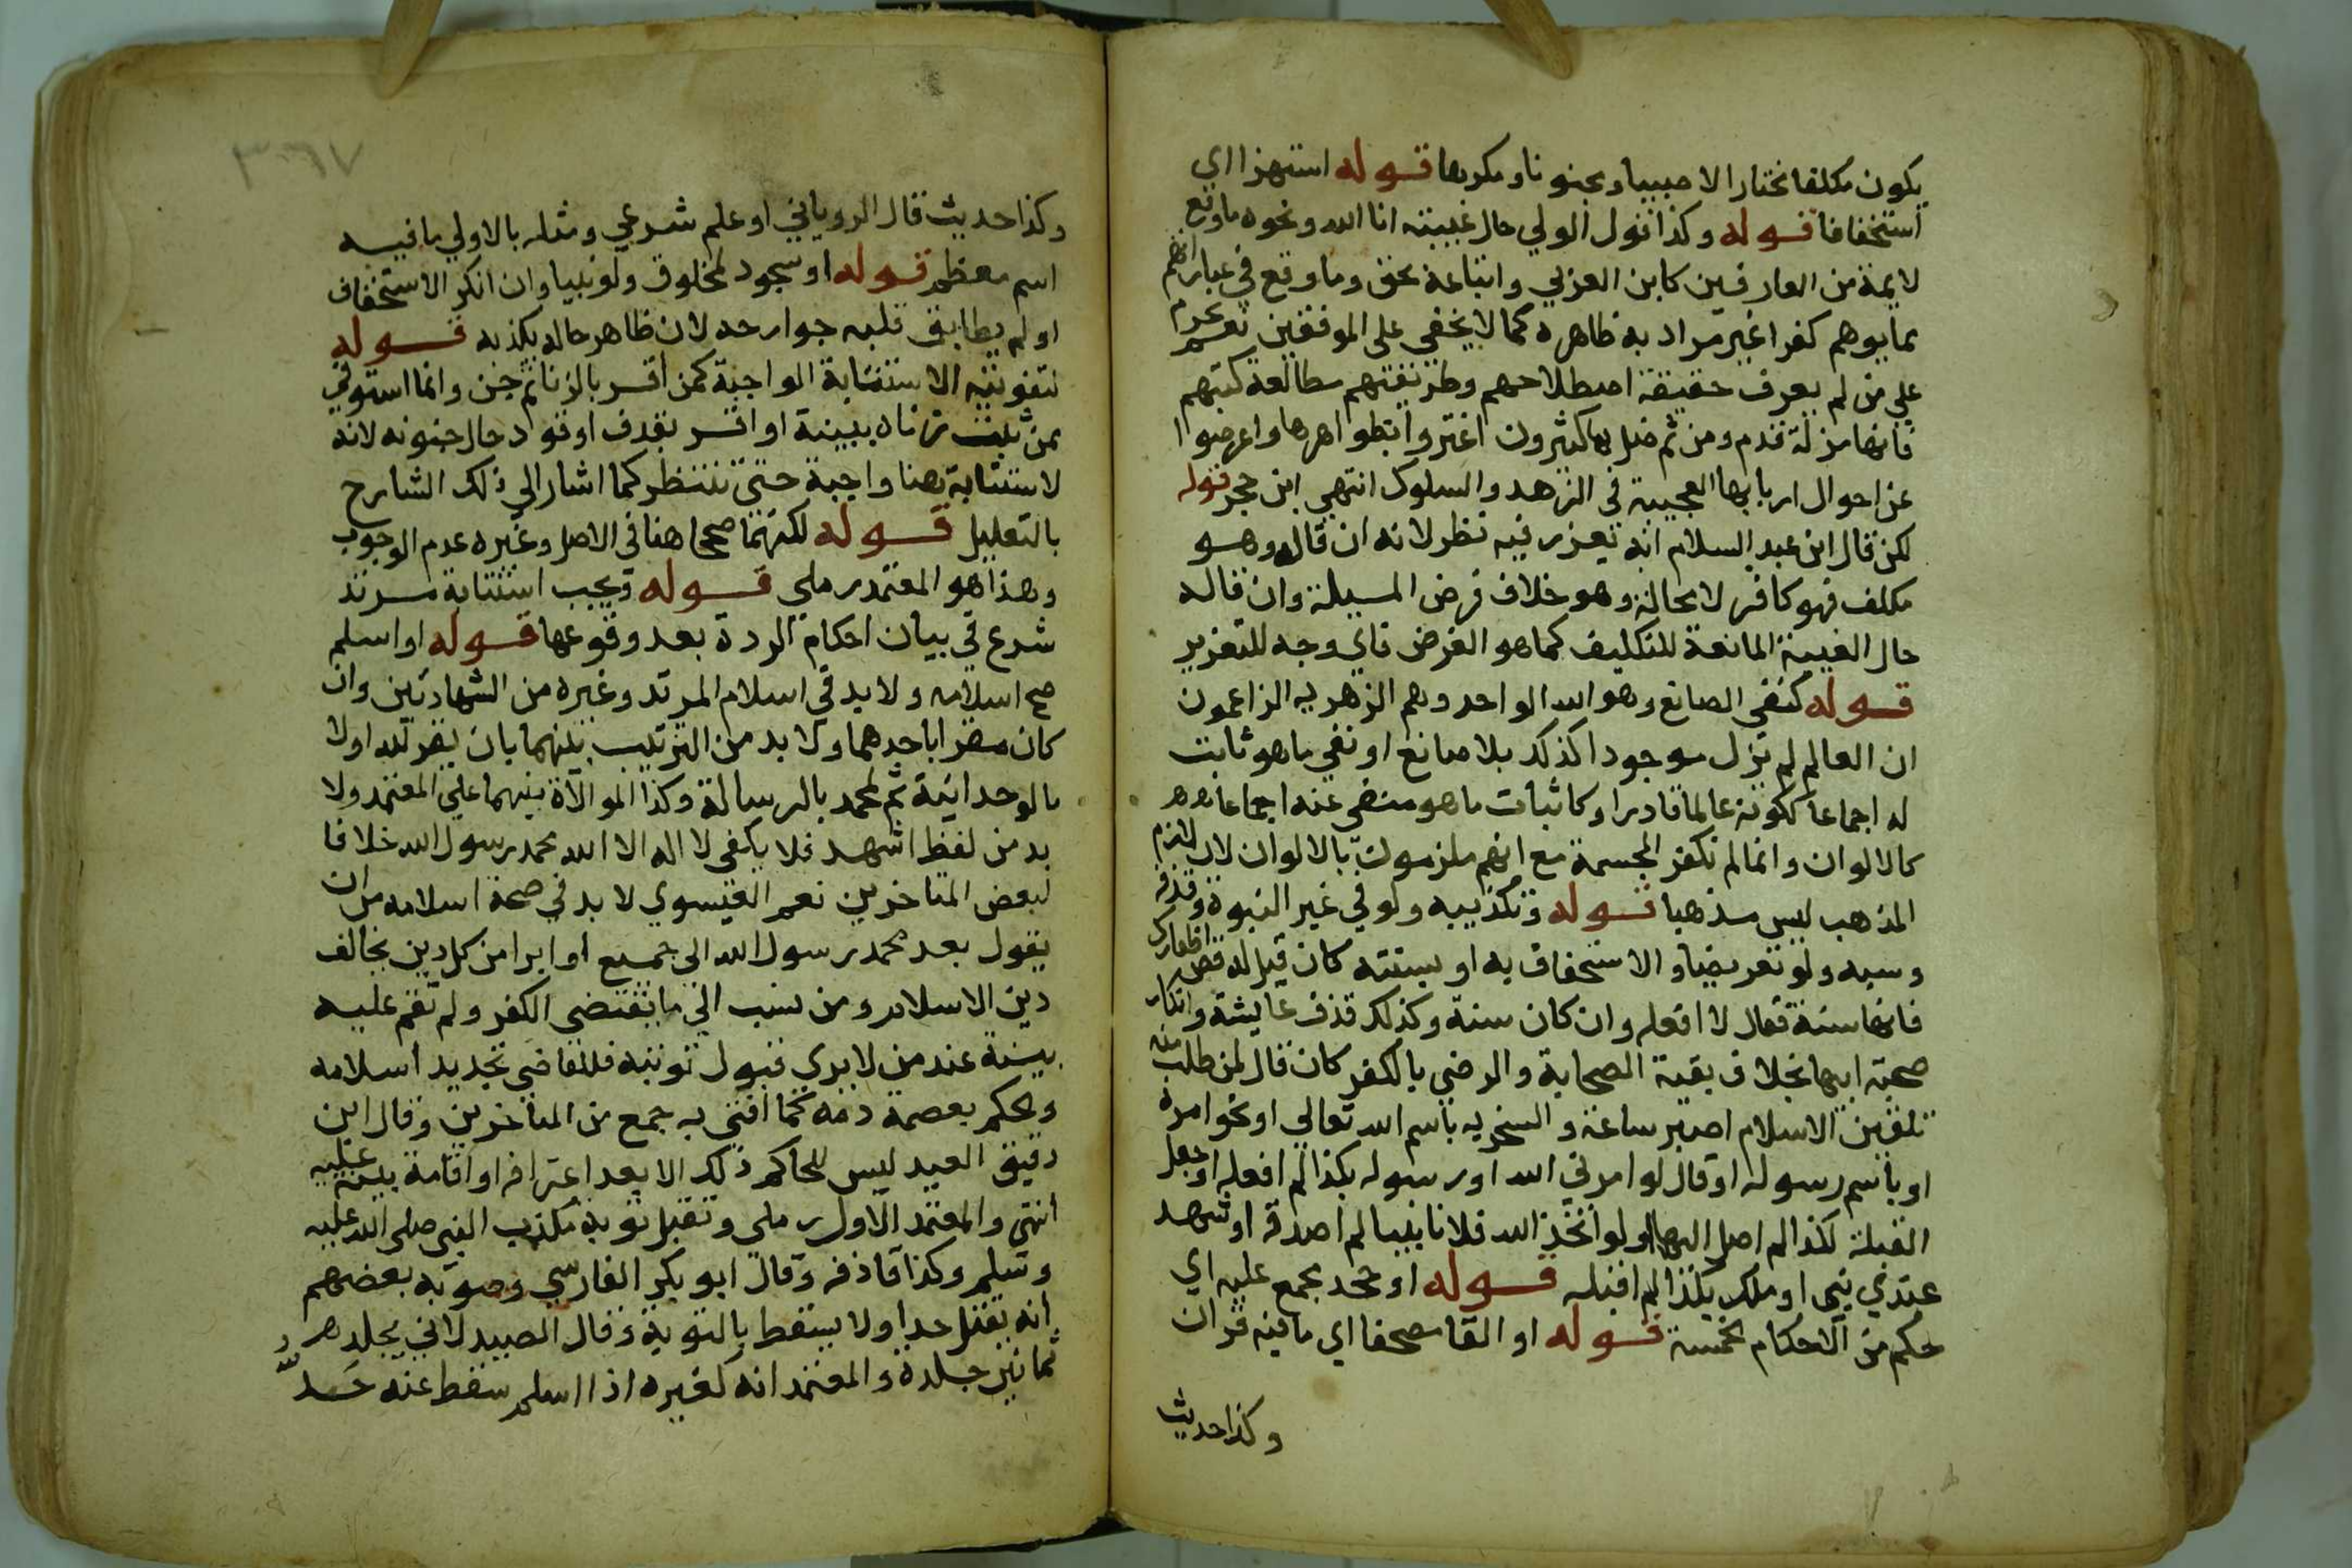 يكون مكلفا مختارا لا صبيا ومجنونا ومكرها قوله استهزا اي
استخفافا قوله وكذا قول الولي حال غيبته انا الله ونحوه ما وقع
لايمة من العارفين كابن العربي واتباعه بحق وما وقع في عباراتهم
مما يوهم كفرا غير مراد به ظاهره كما لا يخفي على الموفقين نعم يحرم
علي من لم يعرف حقيقة اصطلاحهم وطريقتهم مطالعة كتبهم
فانها مزلة قدم ومن ثم ضل بها كثيرون اغتروا بظواهرها واعرضوا
عن احوال اربابها العجيبة في الزهد والسلوك انتهي ابن حجر قوله
لكن قال ابن عبد السلام انه يعزر فيه نظر لانه ان قاله وهو
مكلف فهو كافر لا محالة وهو خلاف فرض المسيلة وان قاله
حال الغيبة المانعة للتكليف كما هو الفرض فاي وجه للتعزير
قوله كنفي الصانع وهو الله الواحد وهم الزهريه الزاعمون
ان العالم لم تزل موجودا كذلك بلا صانع او نفي ما هو ثابت
له اجماعا ككونه عالما قادرا وكاثبات ما هو منفي عنه اجماعا
كالالوان وانما لم نكفر المجسمة مع انهم ملزمون بالالوان لان لازم
المذهب ليس مذهبا قوله وتكذيبه ولو في غير النبوة وقذفه
وسبه ولو تعريضا والاستخفاف به او بسنته كان قيل له قص اظفارك
فانها سنة فقال لا افعله وان كان سنة وكذلك قذف عايشة وانكار
صحبة ابيها بخلاف بقية الصحابة والرضي بالكفر كان قال لمن طلب منه
تلقين الاسلام اصبر ساعة والسخريه باسم الله تعالي او نحو امره
او باسم رسوله او قال لو امرني الله او رسوله بكذا لم افعله او جعل
القبلة لكذا لم اصل اليها او لو اتخذ الله فلانا نبيا لم اصدقه او شهد
عندي نبي او ملك بكذا لم اقبله قوله او جحد مجمع عليه اي
حكم من الاحكام الخمسة قوله او القا مصحفا اي ما فيه قران
وكذا حديث
٣٠٦٧
وكذا حديث قال الروياني او علم شرعي ومثله بالاولي ما فيه
اسم معظم قوله او سجود لمخلوق ولو نبيا وان انكر الاستخفاف
او لم يطابق قلبه جوارحه لان ظاهر حاله يكذبه قوله
لتفويته الاستتابة الواجبة كمن اقر بالزنا ثم جن وانما استوفي
ممن ثبت زناه ببينة او اقر بقذف او قود حال جنونه لانه
لاستتابة هنا واجبة حتى تنتظر كما اشار الي ذلك الشارح
بالتعليل قوله لكنهما صححا هنا في الاصل وغيره عدم الوجوب
وهذا هو المعتمد رملي قوله ويجب استتابة مرتد
شرع في بيان احكام الردة بعد وقوعها قوله او اسلم
صح اسلامه ولابد في اسلام المرتد وغيره من الشهادتين وان
كان مقرا باحدهما ولا بد من الترتيب بينهما بان يقر لله اولا
بالوحدانية ثم لمحمد بالرسالة وكذا الموالاة بينهما علي المعتمد ولا
بد من لفظ اشهد فلا يكفي لا اله الا الله محمد رسول الله خلافا
لبعض المتاخرين نعم العيسوي لا بد في صحة اسلامه من ان
يقول بعد محمد رسول الله الي جميع او ابرا من كل دين يخالف
دين الاسلام ومن نسب الي ما يقتضي الكفر ولم تقم عليه
بينة عند من لا يري قبول توبته فللقاضي تجديد اسلامه
ويحكم بعصمة دمه كما افتي به جمع من المتاخرين وقال ابن
دقيق العيد ليس للحاكم ذلك الا بعد اعترافه او اقامة بينة عليه
انتي والمعتمد الاول رملي وتقبل توبة مكذب النبي صلى الله عليه
وسلم وكذا قاذفه وقال ابو بكر الفارسي وصوبه بعضهم
انه يقتل حدا ولا يسقط بالتوبة وقال الصيدلاني يجلد
ثمانين جلدة والمعتمد انه كغيره اذا اسلم سقط عنه حد